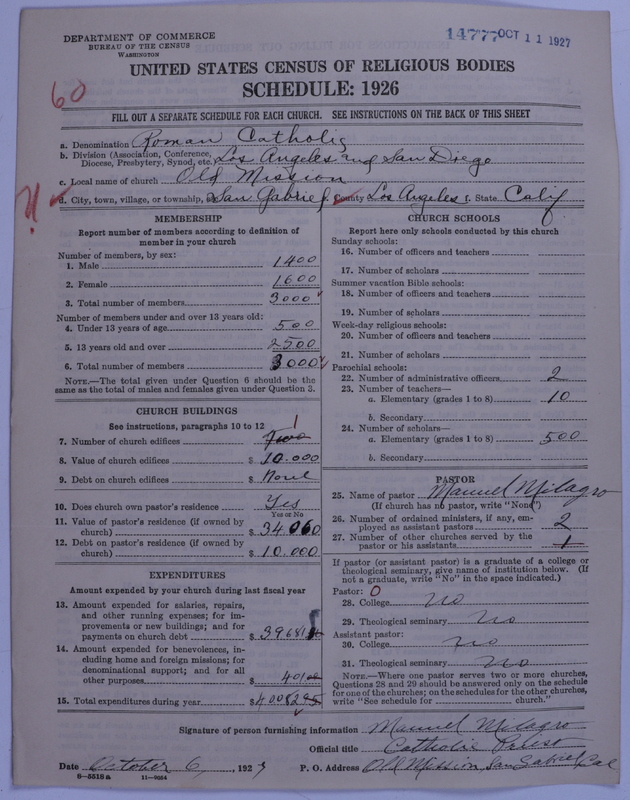 DEPARTMENT OF COMMERCE
BUREAU OF THE CENSUS
WASHINGTON
14777 OCT 11 1927
UNITED STATES CENSUS OF RELIGIOUS BODIES
SCHEDULE: 1926
60
FILL OUT A SEPARATE SCHEDULE FOR EACH CHURCH. SEE INSTRUCTIONS ON THE BACK OF THIS SHEET
a. Denomination Roman Catholic
b. Division (Association, Conference,
Diocese, Presbytery, Synod, etc. Los Angeles and San Diego
c. Local name of church Old Mission
d. City, town, village, or township, San Gabriel County Los Angeles f. State Calif
MEMBERSHIP
Report number of members according to definition of
member in your church
Number of members, by sex:
1. Male 1400
2. Female 1600
3. Total number of members 3000
Number of members under and over 13 years old:
4. Under 13 years of age 500
5. 13 years old and over 2500
6. Total number of members 3000
NOTE.—The total given under Question 6 should be the
same as the total of males and females given under Question 3.
CHURCH BUILDINGS
See instructions, paragraphs 10 to 12
7. Number of church edifices Two 1
8. Value of church edifices $ 10.000
9. Debt on church edifices $ None
10. Does church own pastor's residence Yes
Yes or No
11. Value of pastor's residence (if owned by
church) $ 34.000
12. Debt on pastor's residence (if owned by
church) $ 10.000
EXPENDITURES
Amount expended by your church during last fiscal year
13. Amount expended for salaries, repairs,
and other running expenses; for im-
provements or new buildings; and for
payments on church debt $ 39681
14. Amount expended for benevolences, in-
cluding home and foreign missions; for
denominational support; and for all
other purposes $ 401
15. Total expenditures during year $
CHURCH SCHOOLS
Report here only schools conducted by this church
Sunday schools:
16. Number of officers and teachers
17. Number of scholars
Summer vacation Bible schools:
18. Number of officers and teachers
19. Number of scholars
Week-day religious schools:
20. Number of officers and teachers
21. Number of scholars
Parochial schools:
22. Number of administrative officers 2
23. Number of teachers—
a. Elementary (grades 1 to 8) 10
b. Secondary
24. Number of scholars—
a. Elementary (grades 1 to 8) 500
b. Secondary
PASTOR
25. Name of pastor Manuel Milagro
(If church has no pastor, write "None")
26. Number of ordained ministers, if any, em-
ployed as assistant pastors 2
27. Number of other churches served by the
pastor or his assistants 1
If pastor (or assistant pastor) is a graduate of a college or
theological seminary, give name of institution below. (If
not a graduate, write "No" in the space indicated.)
Pastor: 0
28. College no
29. Theological seminary no
Assistant pastor:
30. College no
31. Theological seminary no
NOTE.—Where one pastor serves two or more churches,
Questions 28 and 29 should be answered only on the schedule
for one of the churches; on the schedules for the other churches,
write "See schedule for church."
Signature of person furnishing information Manuel Milagro
Official title Catholic Priest
Date October 6, 1927 P. O. Address Old Mission San Gabriel Cal
8—5518a 11—9054